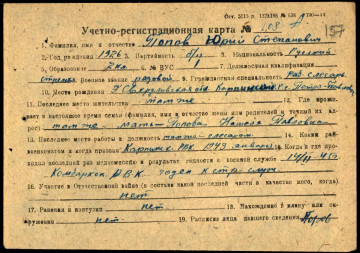 Учетно-регистрационная карта № 108
157
1. Фамилия, имя и отчество Попов Юрий Степанович
2. Год рождения 1926 3. Партийность б/п 4. Национальность Русский
5. Образование 2 кл. 6. № ВУС 1 7. Должностная квалификация
стрелок 8. Воинское звание рядовой 9. Гражданская специальность раб. слесарь
10. Место рождения Свердловская обл.
11. Последнее место жительства там же 12. Где проживает
в настоящее время семья (фамилия, имя и отчество жены или родителей и точный их адрес)
там же мать Попова Павловна
13. Последнее место работы и должность 14. Каким райвоенкоматом
и когда призван 1943 январь 15. Когда и где проходил
последний раз медкомиссию и результат годности к военной службе
годен к стр. службе
16. Участие в Отечественной войне (в составе какой последней части в качестве кого, когда)
нет
17. Ранения и контузии нет 18. Нахождение в плену или окружении
нет 19. Расписка лица давшего сведения Попов